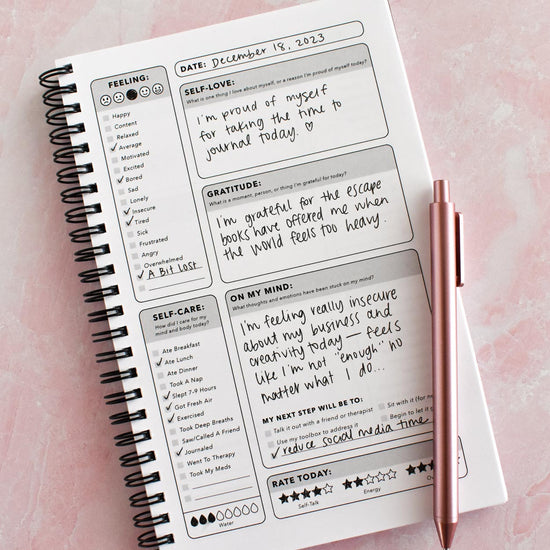 DATE: December 18, 2023
FEELING:
Happy
Content
Relaxed
Average
Motivated
Excited
Bored
Sad
Lonely
Insecure
Tired
Sick
Frustrated
Angry
Overwhelmed
A Bit Lost
SELF-LOVE:
What is one thing I love about myself, or a reason I'm proud of myself today?
i'm proud of myself
for taking the time to
journal today. ♡
GRATITUDE:
What is a moment, person, or thing I'm grateful for today?
i'm grateful for the escape
books have offered me when
the world feels too heavy.
SELF-CARE:
How did I care for my
mind and body today?
Ate Breakfast
Ate Lunch
Ate Dinner
Took A Nap
Slept 7-9 Hours
Got Fresh Air
Exercised
Took Deep Breaths
Saw/Called A Friend
Journaled
Went To Therapy
Took My Meds
Water
ON MY MIND:
What thoughts and emotions have been stuck on my mind?
i'm feeling really insecure
about my business and
creativity today — feels
like i'm not "enough" no
matter what I do...
MY NEXT STEP WILL BE TO:
Talk it out with a friend or therapist
Sit with it (for
Use my toolbox to address it
Begin to let it
reduce social media time
RATE TODAY:
Self-Talk
Energy